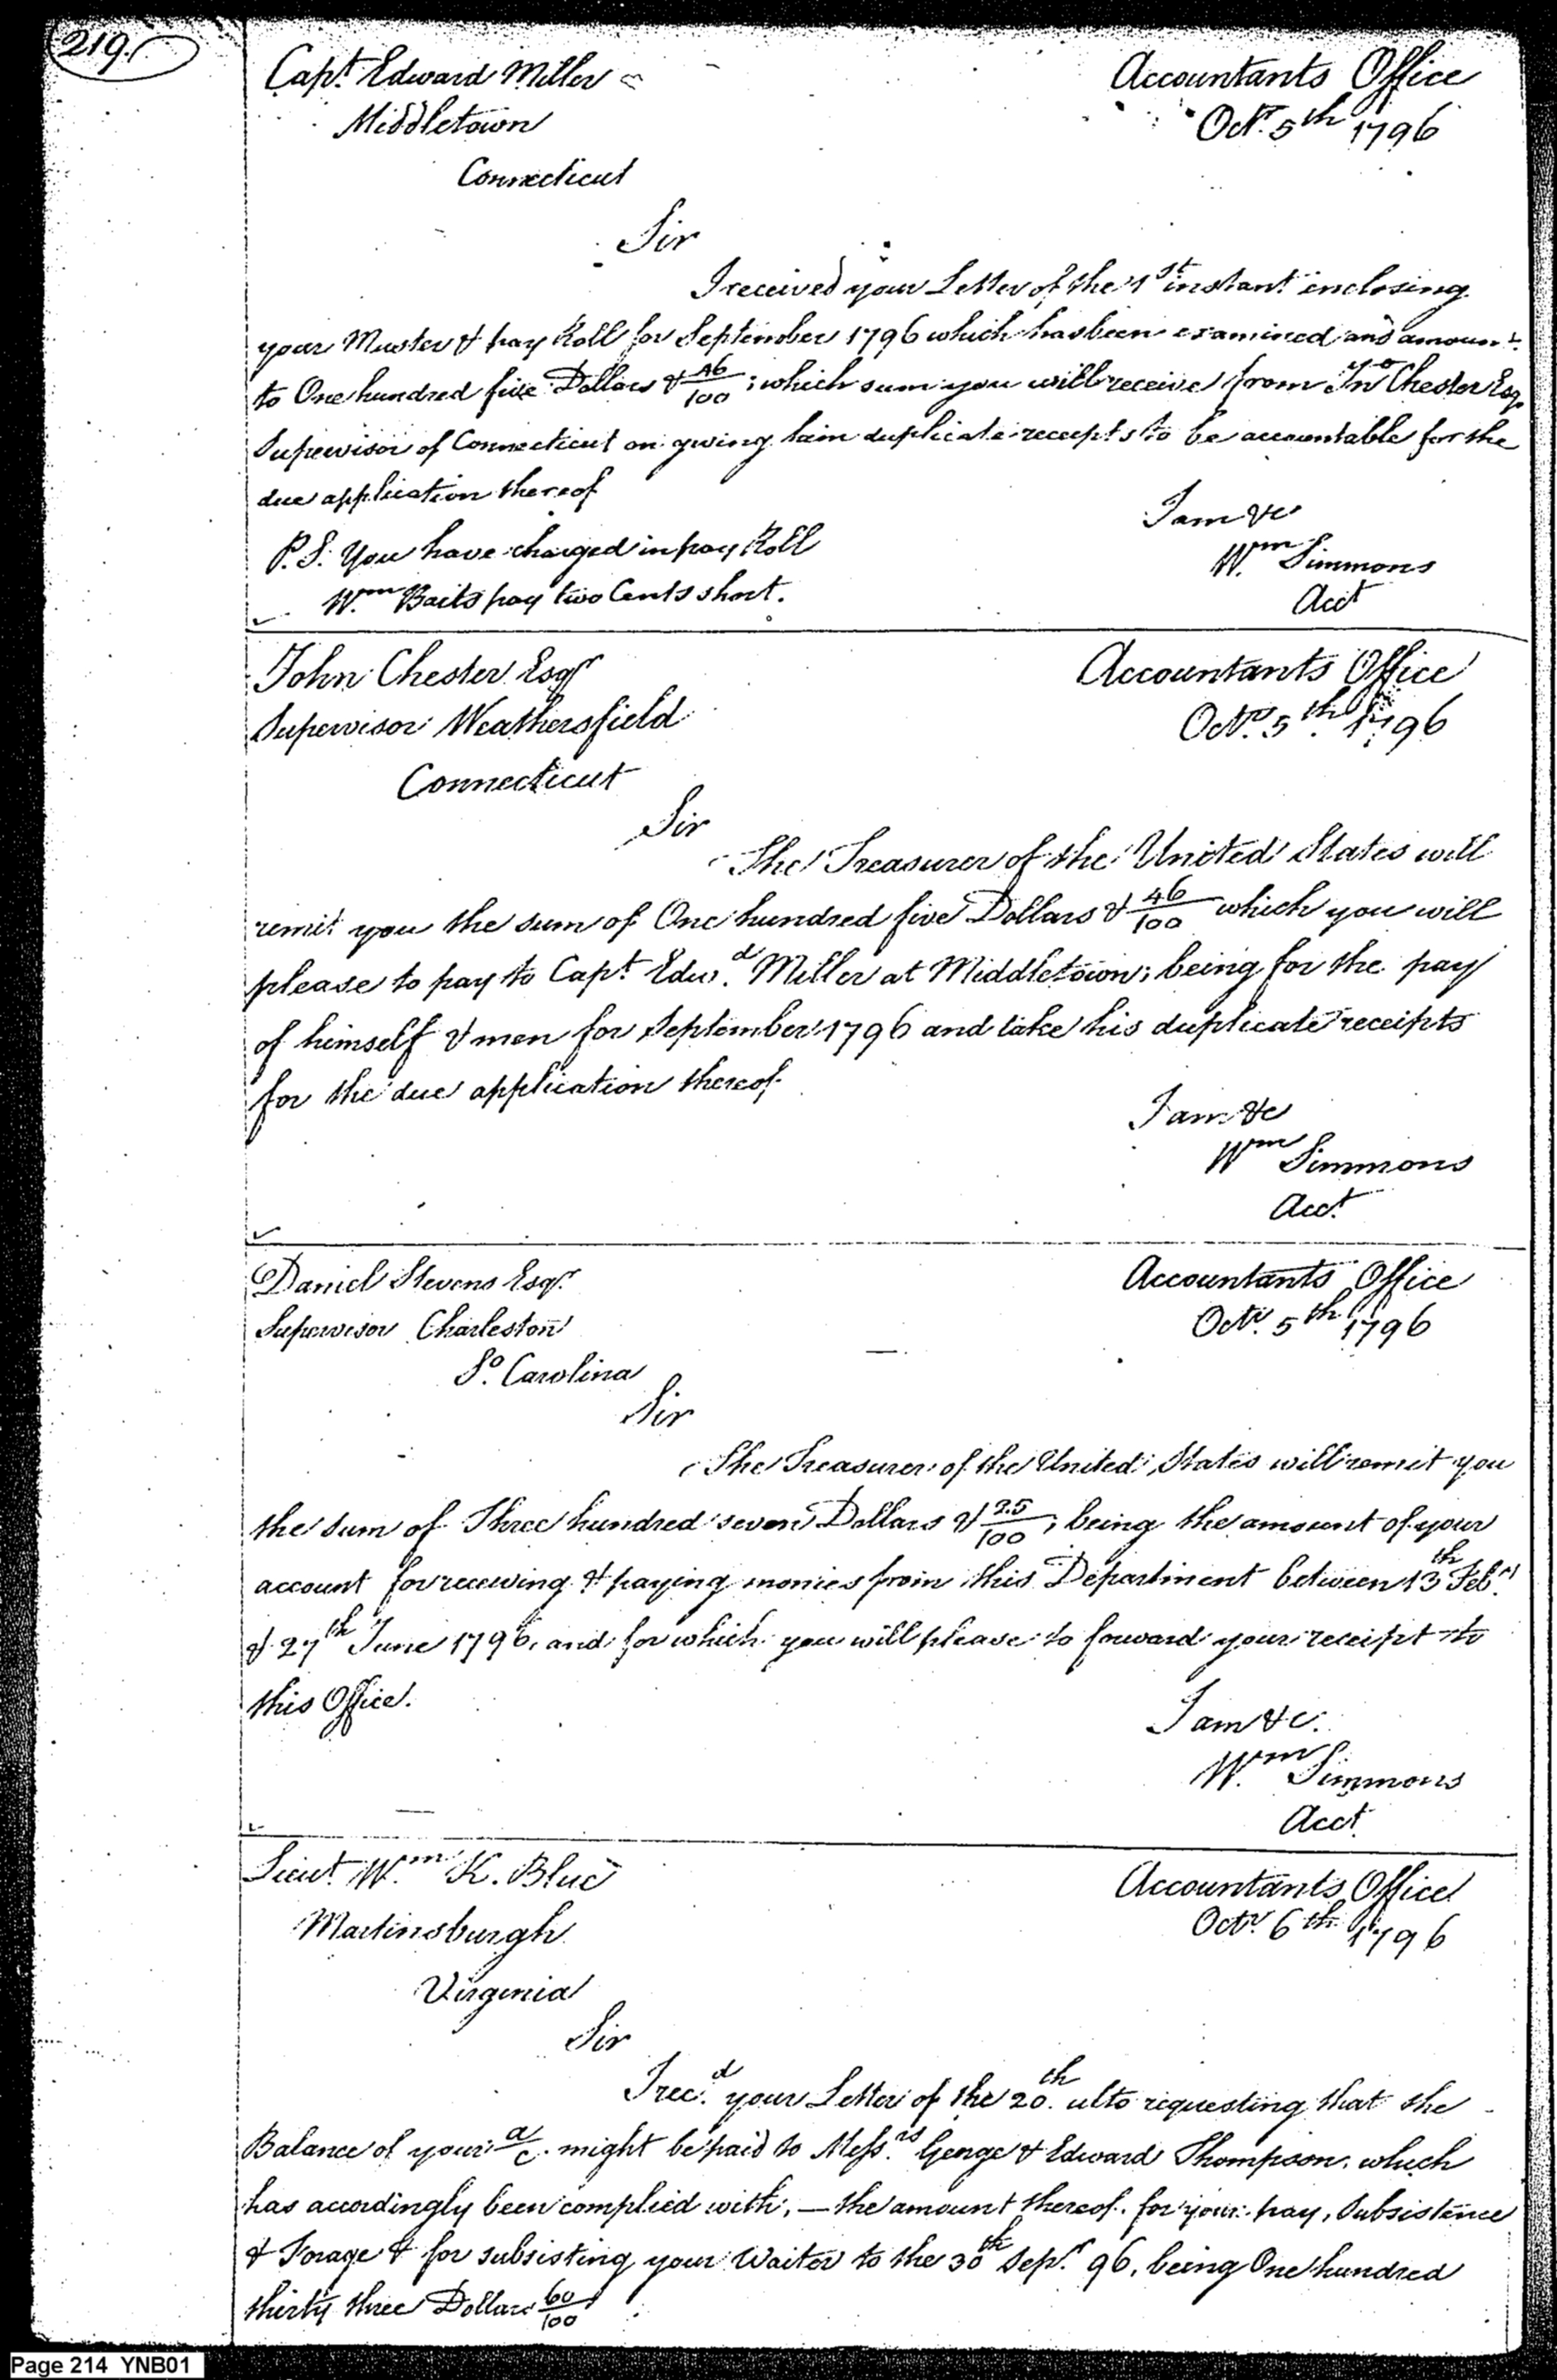 219.
Capt. Edward Miller
Middletown
Connecticut
Accountants Office
Octr. 5th 1796
Sir
I received your Letter of the 1st instant inclosing
your Muster & pay Roll for September 1796 which has been examined and amount
to One hundred five Dollars & 46/100; which sum you will receive from Jno Chester Esq.
Supervisor of Connecticut on giving him duplicate receipts to be accountable for the
due application thereof
I am &c
Wm. Simmons
Acct
P.S. You have charged in pay Roll
Wm. Baits pay two Cents short.
John Chester Esqr
Supervisor Weathersfield
Connecticut
Accountants Office
Octr. 5th. 1796
Sir
The Treasurer of the United States will
remit you the sum of One hundred five Dollars & 46/100 which you will
please to pay to Capt. Edwd. Miller at Middletown; being for the pay
of himself & men for September 1796 and take his duplicate receipts
for the due application thereof.
I am &c
Wm Simmons
Acct.
Daniel Stevens Esqr.
Supervisor Charleston
So. Carolina
Accountants Office
Octr. 5th 1796
Sir
The Treasurer of the United States will remit you
the sum of Three hundred seven Dollars & 25/100; being the amount of your
account for receiving & paying monies from this Department between 13th Feby.
& 27th June 1796, and for which you will please to forward your receipt to
this Office.
I am &c.
Wm. Simmons
Acct
Lieut. Wm. K. Blue
Martinsburgh
Virginia
Accountants Office
Octr. 6th 1796
Sir
I recd. your Letter of the 20th. ulto requesting that the
Balance of your a/c. might be paid to Messrs. George & Edward Thompson, which
has accordingly been complied with, — the amount thereof for your pay, Subsistence
& Forage & for subsisting your Waiter to the 30th Sepr. 96, being One hundred
thirty three Dollars 60/100
Page 214 YNB01